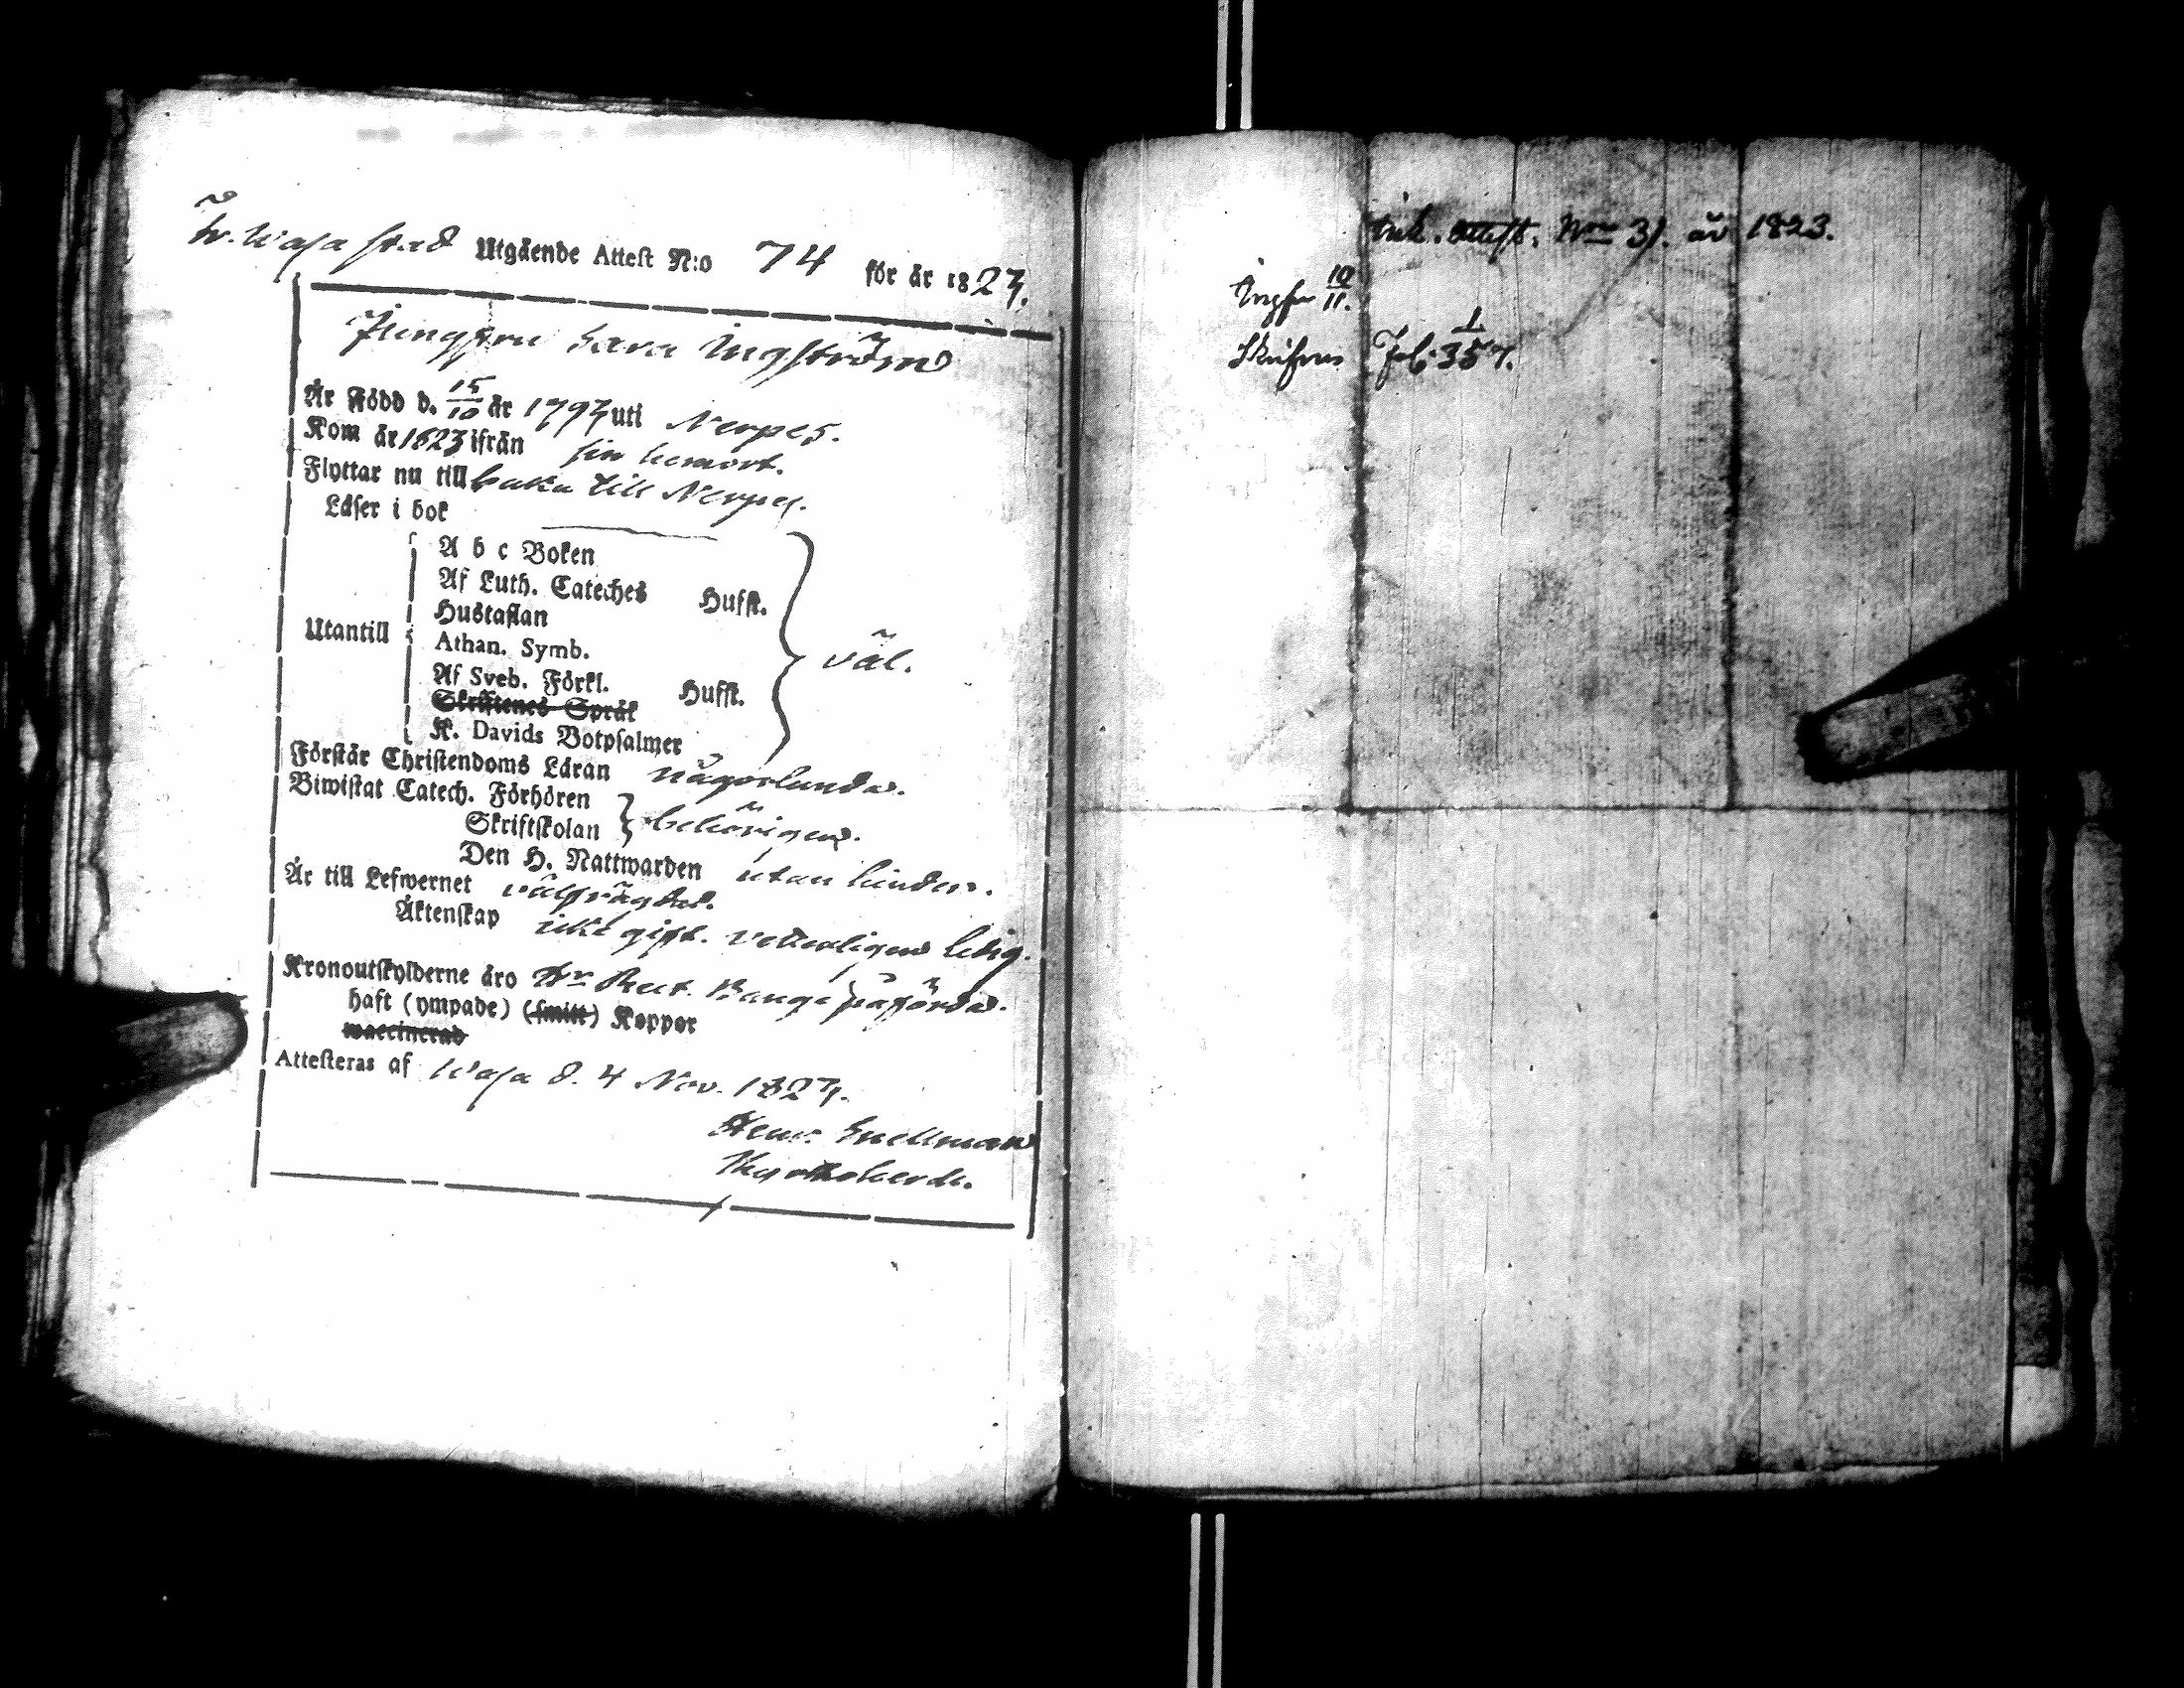 fr. Wasa stad Utgående Attest N:o 74 för år 1823.
Jungfru Sara Ingström
Är Född d. 15/10 år 1793 uti Nerpes.
Kom år 1823 ifrån sin hemort.
Flyttar nu till baka till Nerpes.
Läser i bok
A b c Boken
Af Luth. Cateches Hufst.
Hustaflan
Utantill Athan. Symb. väl.
Af Sveb. Förkl. Hufst.
Skriftenes Språk
K. Davids Botpsalmer
Förstår Christendoms Läran någorlunda.
Biwistat Catech. Förhören
Skriftskolan behörigen.
Den H. Nattwarden utan hinder.
Är till Lefwernet välfrägdad.
Äktenskap icke gift. veterligen ledig.
Kronoutskylderne äro Hr Rect. påförda.
haft (ympade) (smitt) Koppor
waccinerad
Attesteras af Wasa d. 4 Nov. 1823.
Henr. Snellman
Kyrkoherde.
Ink. Attest. Nro 31. år 1823.
10/11.
Fol. 357.